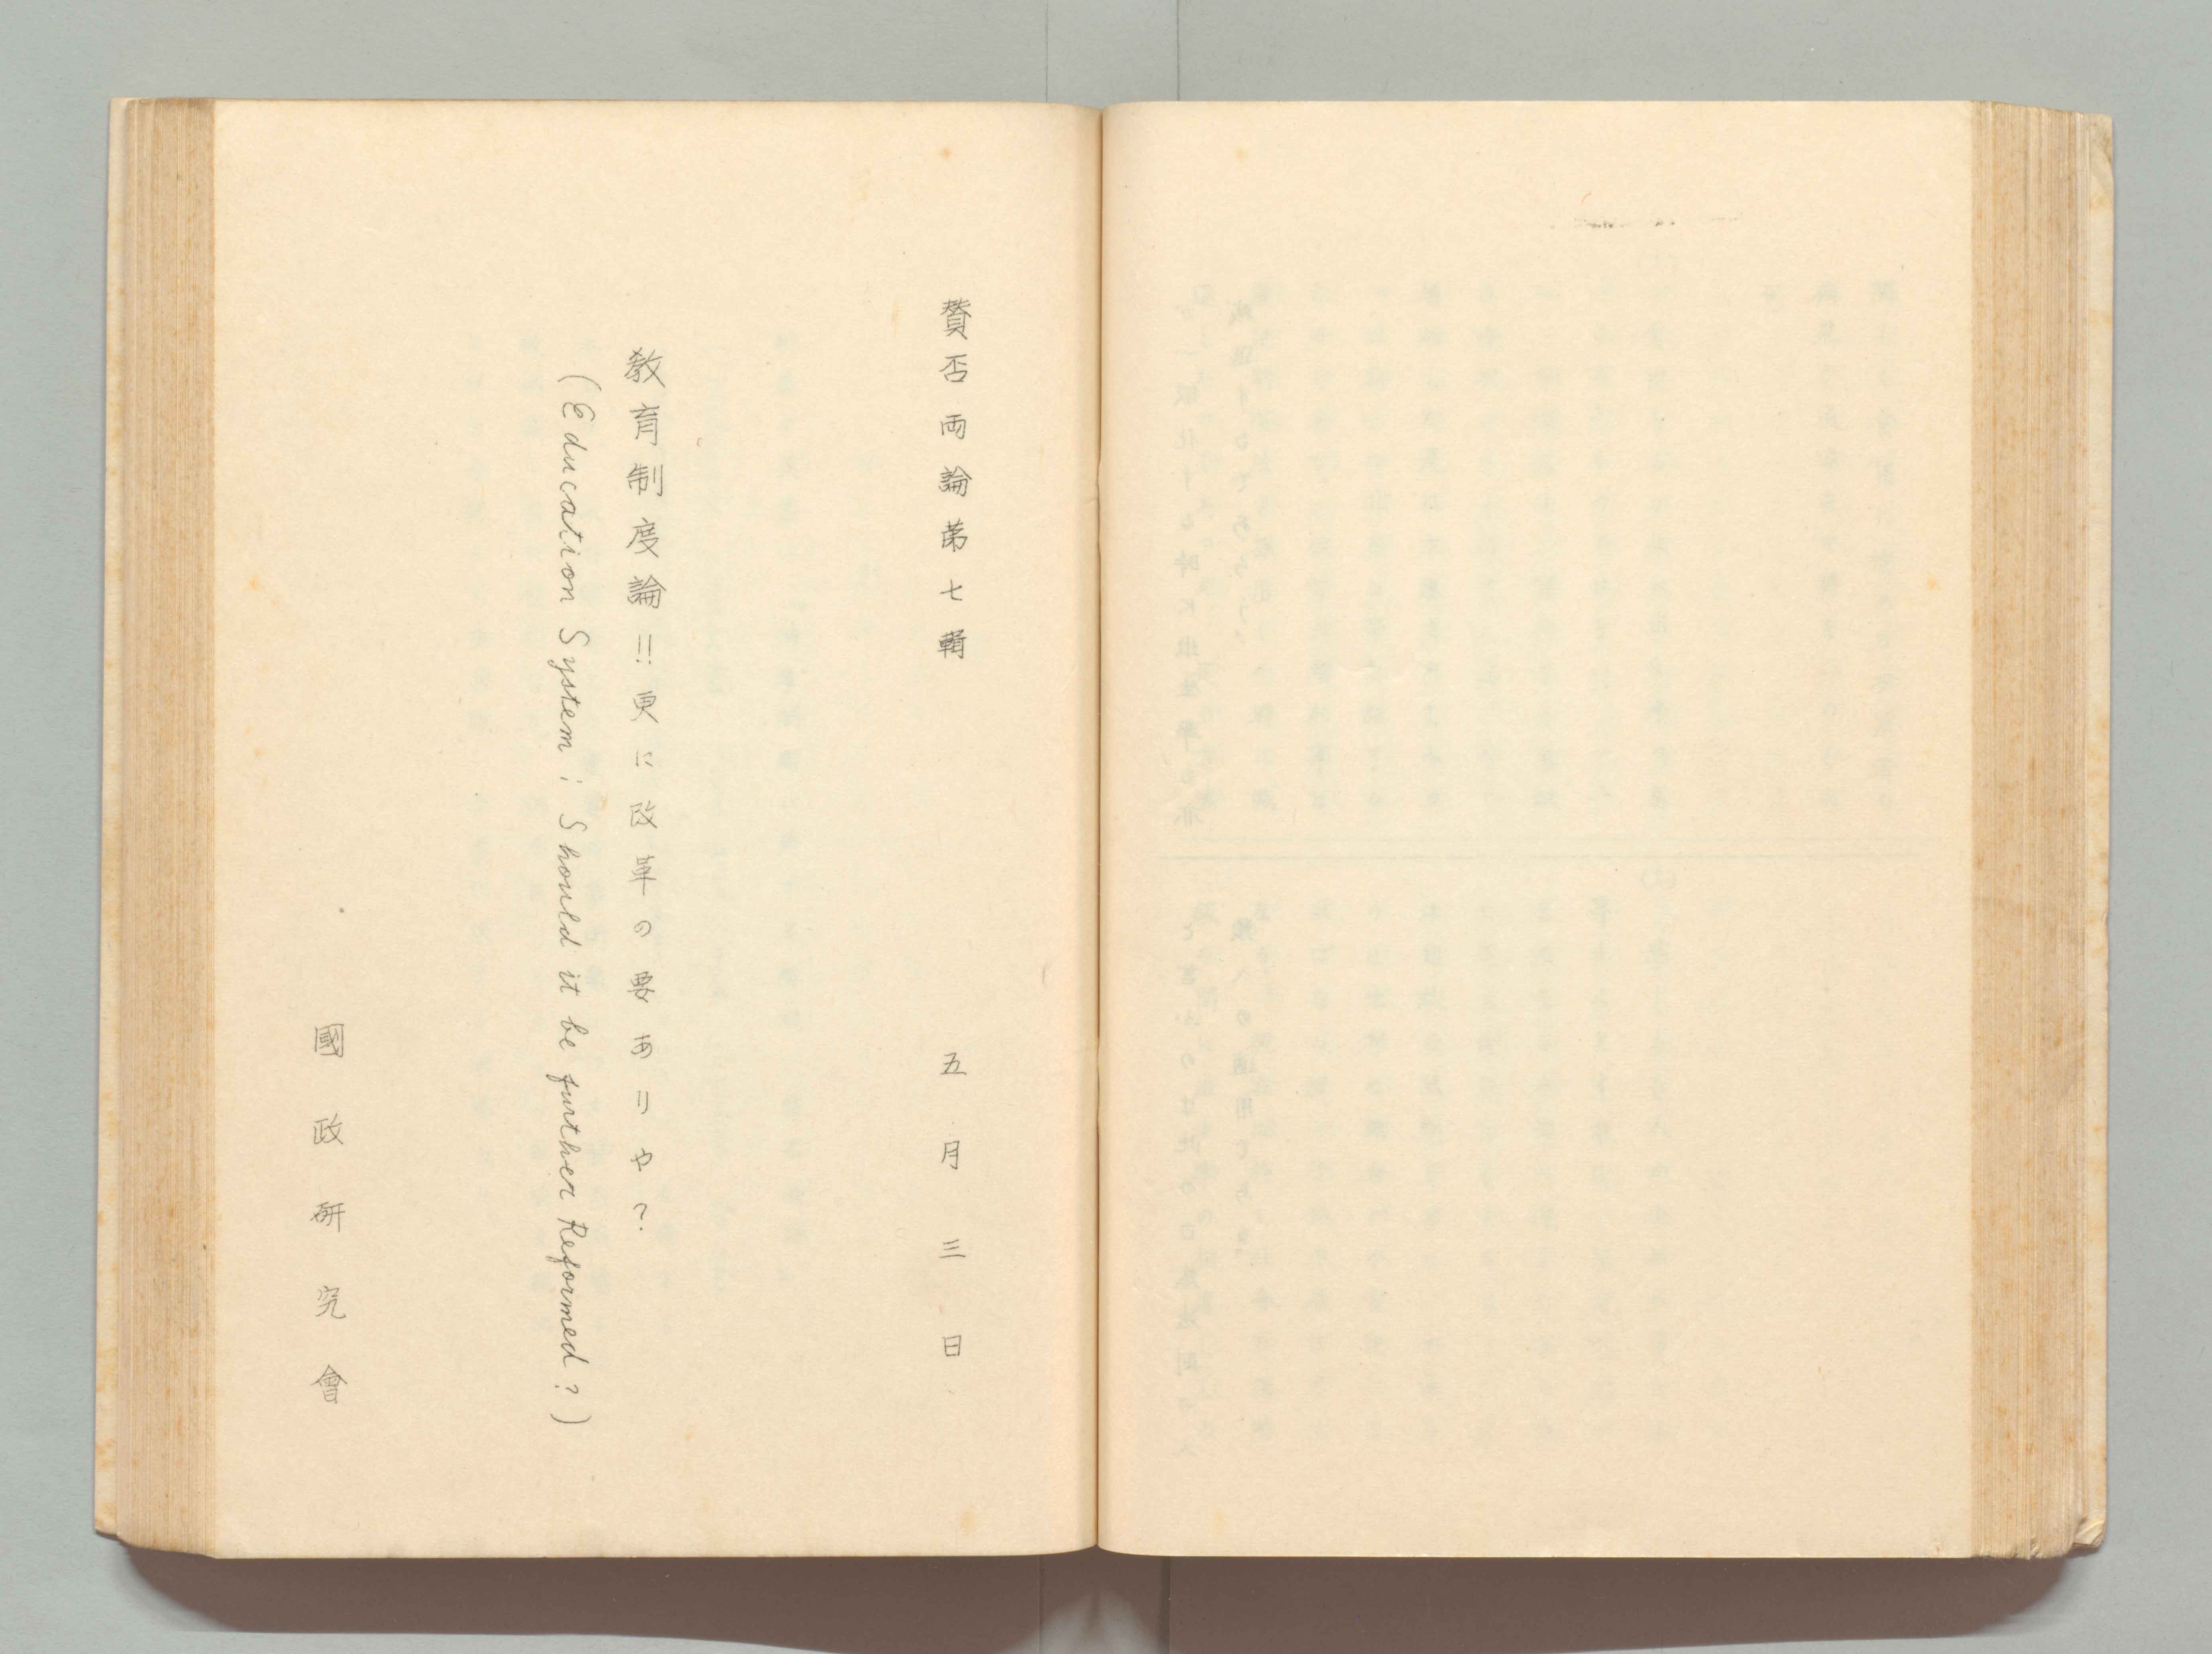 賛否両論第七輯 五月三日
教育制度論!!更に改革の要ありや?
(Education System; Should it be further Reformed?)
國政研究會